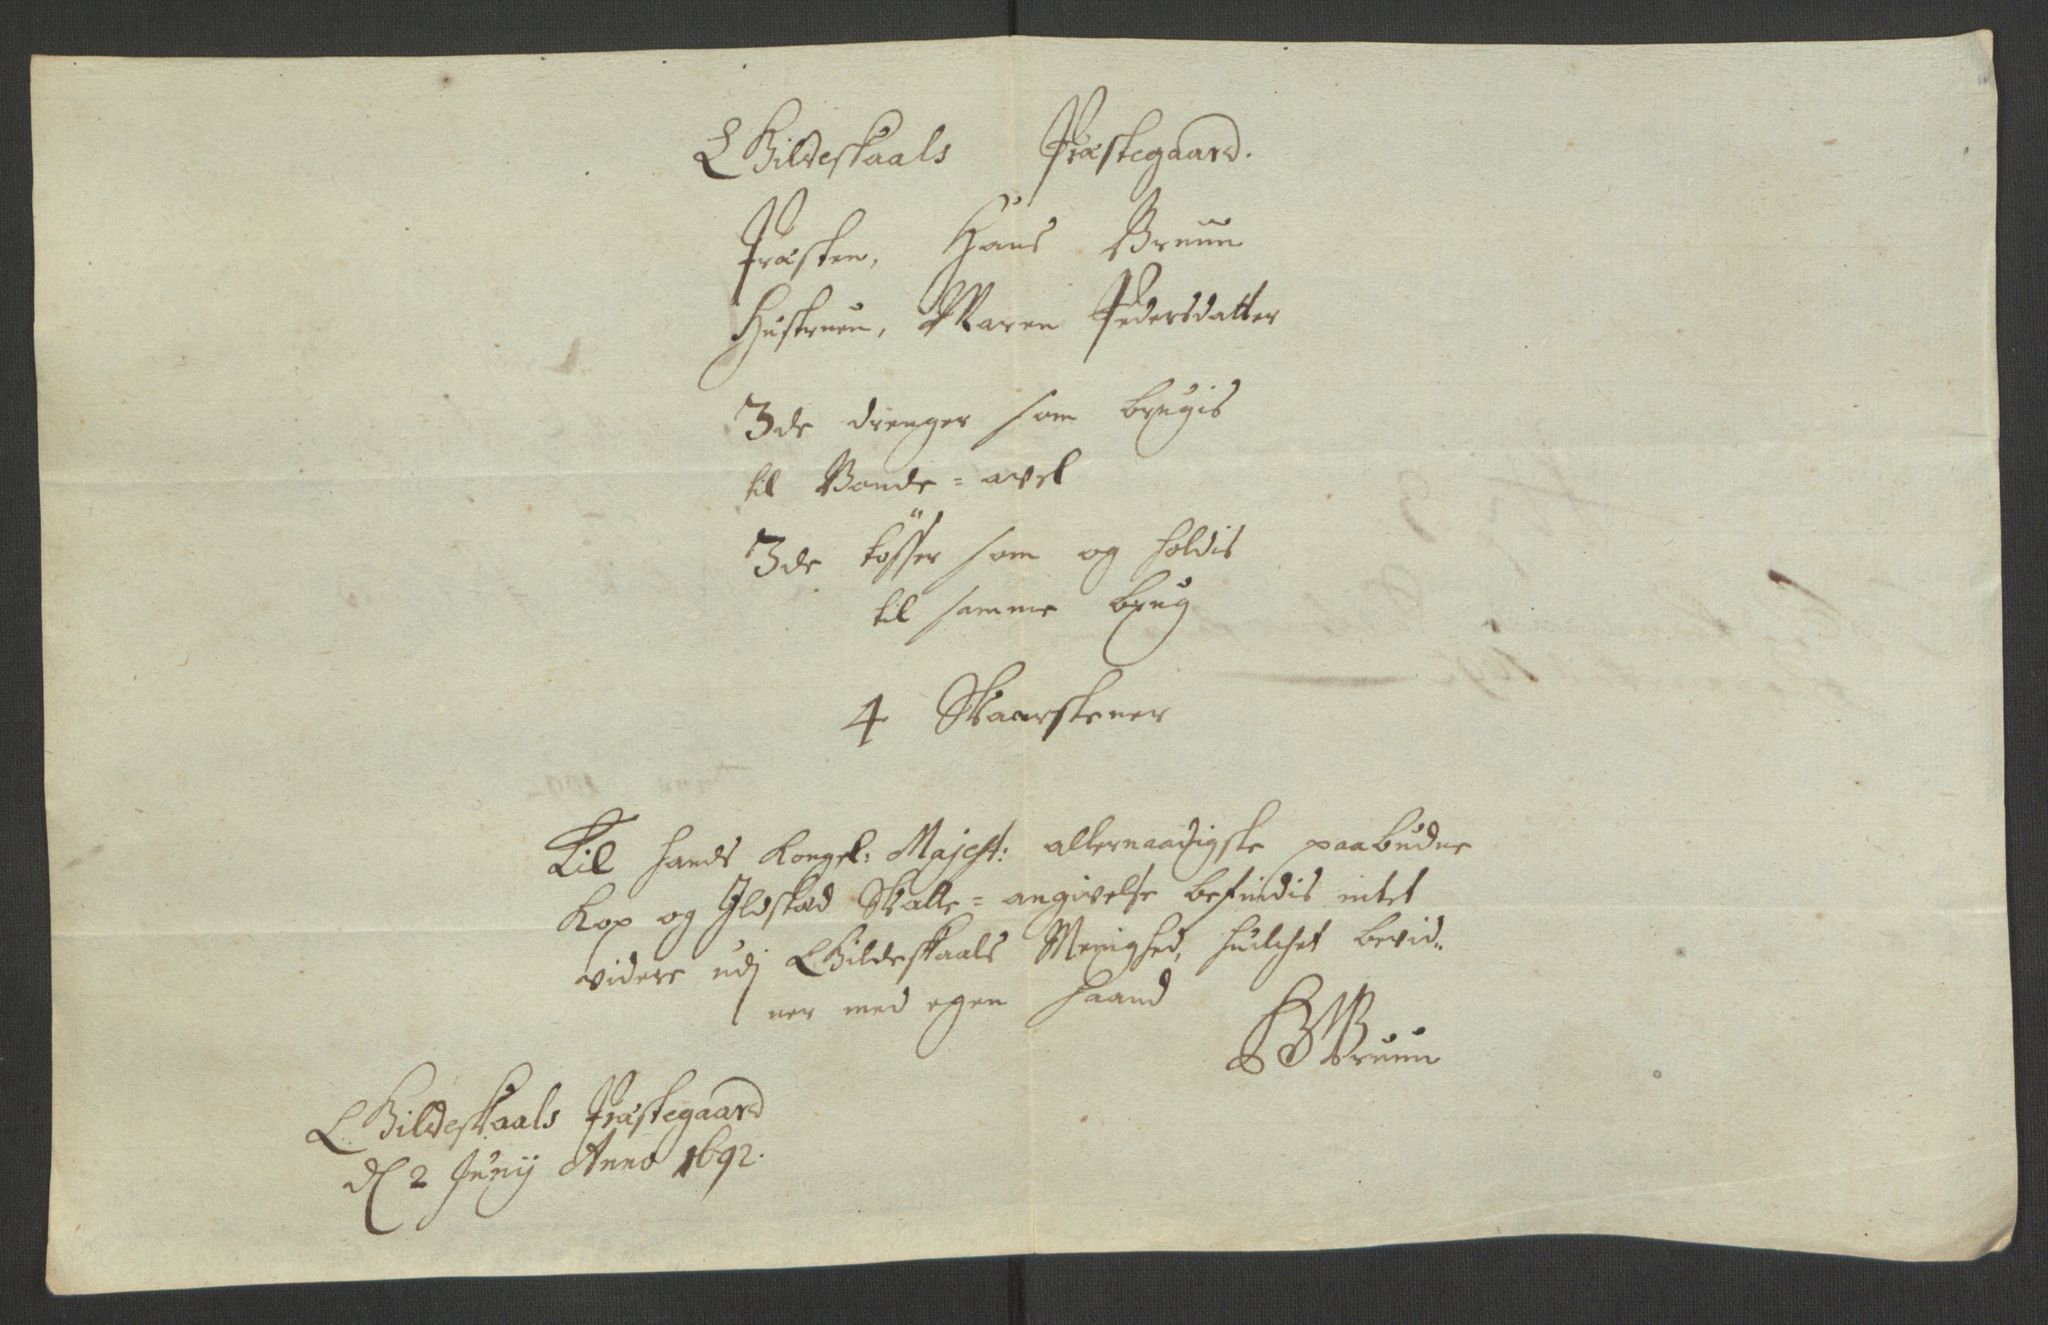 Gildeskaals Præstegaard.
Præsten, Hans Bruun
Hustruen, Maren Pedersdatter
3de drenger som brugis
til Bonde=avel
3de tösser som og holdis
til samme brug
4 Skaarstener
Til hands Kongel: Majest: allernaadigste paabudne
Kop og Ildstæd Skatte=angivelse befindis intet
videre udj Gildeskaals Menighed, huilchet bevid„
ner med egen haand
HBruun
Gildeskaals Præstegaard
d 2 Junij Anno 1692.